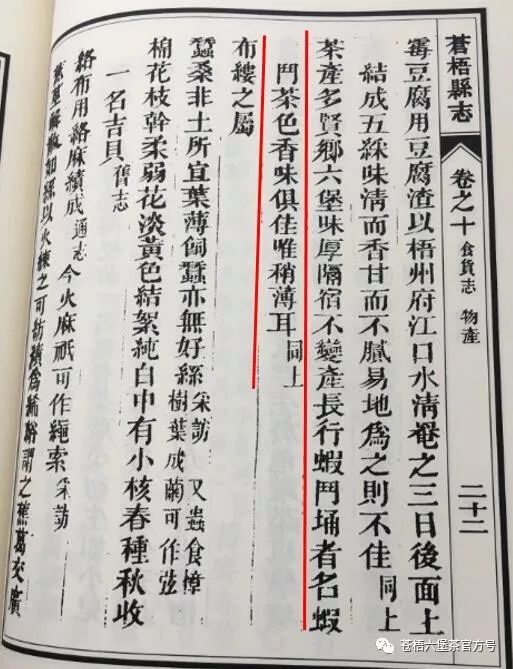 蒼梧縣志
卷之十
食貨志 物產
二十二
霉豆腐用豆腐渣以梧州府江口水清菴之三日後面上
結成五綵味清而香甘而不膩易地爲之則不佳 同上
茶產多賢鄉六堡味厚隔宿不變產長行蝦鬥埇者名蝦
鬥茶色香味俱佳唯稍薄耳 同上
布縷之屬
蠶桑非土所宜葉薄飼蠶亦無好絲 采訪 又蟲食樟
樹葉成繭可作弦
棉花枝幹柔弱花淡黃色結絮純白中有小核春種秋收
一名吉貝 舊志
絡布用絡麻績成 通志 今火麻祇可作繩索 采訪
蕉莖解散如絲以火練之可紡績爲絺綌謂之蕉葛交廣
苍梧六堡茶官方号